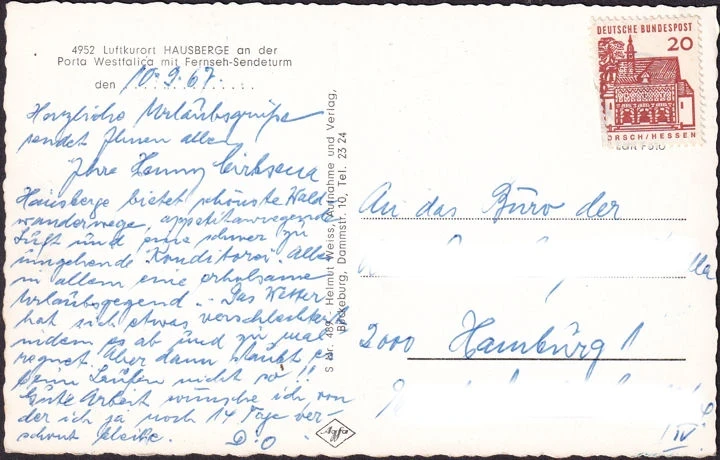 4952 Luftkurort HAUSBERGE an der
Porta Westfalica mit Fernseh-Sendeturm
den 10.9.67.
Herzliche Urlaubsgrüße
sendet Ihnen allen
Ihre Henny Cirksena
Hausberge bietet schönste Wald
wanderwege, appetitanregende
Luft und eine schwer zu
umgehende Konditorei. Alles
in allem eine erholsame
Urlaubsgegend. Das Wetter
hat sich etwas verschlechtert
indem es ab und zu mal
regnet. Aber dann staubt es
beim Laufen nicht so!!
Gute Arbeit wünsche ich von
der ich ja noch 14 Tage ver-
schont bleibe. D.O
S Nr. 489 Helmut Weiss, Aufnahme und Verlag,
Bückeburg, Dammstr. 10, Tel. 23 24
Agfa
DEUTSCHE BUNDESPOST
20
ORSCH/HESSEN
An das Büro der
2000 Hamburg 1
IV